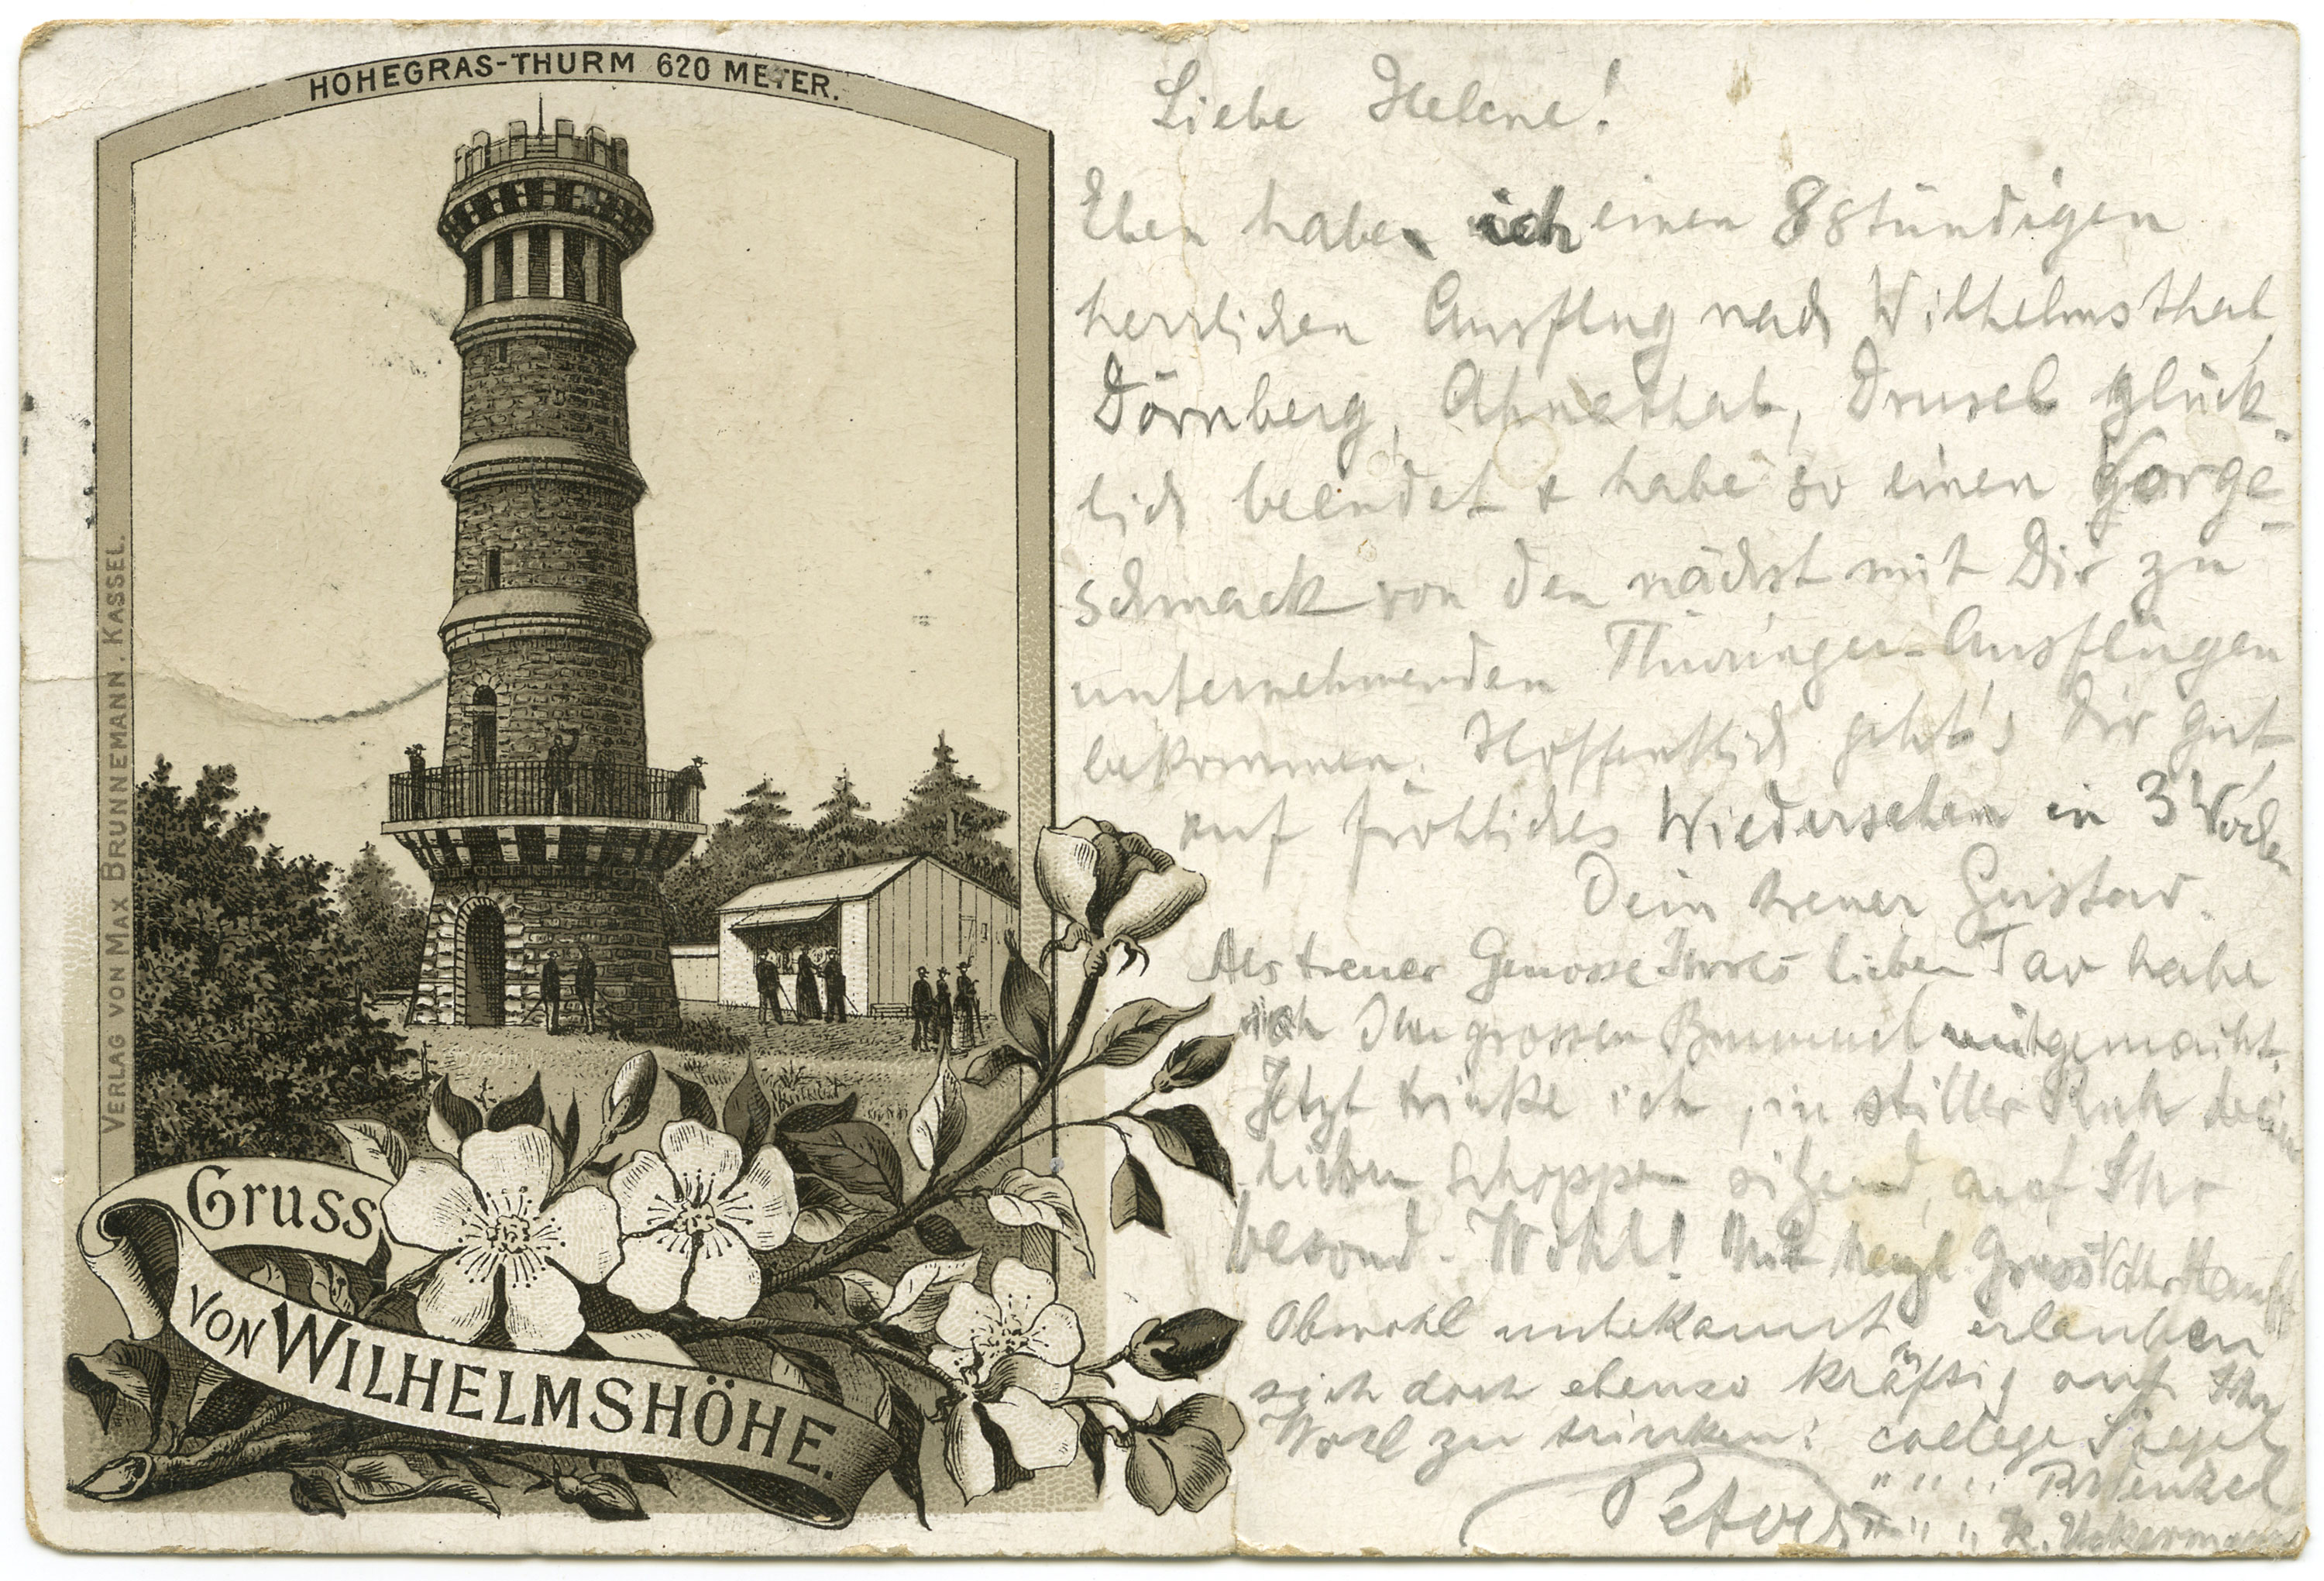 HOHEGRAS-THURM 620 METER.
VERLAG VON MAX BRUNNEMANN. KASSEL.
Gruss
VON WILHELMSHÖHE.
Liebe Helene!
Eben habe ich einen 8stündigen
herrlichen Ausflug nach Wilhelmsthal,
Dörnberg, Ahnethal, Drusel glück-
lich beendet & habe so einen Vorge-
schmack von den nächst mit Dir zu
unternehmenden Thüringer-Ausflügen
bekommen. Hoffentlich geht's Dir gut
auf fröhliches Wiedersehen in 3 Wochen
Dein treuer Gustav.
Als treuer Genosse Ihres lieben Tav habe
ich den grossen Bummel mitgemacht.
Jetzt trinke ich, in stiller Ruh beim
lieben Schoppen sitzend, auf Ihr
besond. Wohl! Mit herzl Gruss
Obwohl unbekannt, erlauben
sich doch ebenso kräftig auf Ihr
Wohl zu trinken: college Siegel
" " "
Peters " " " K. Uckermann